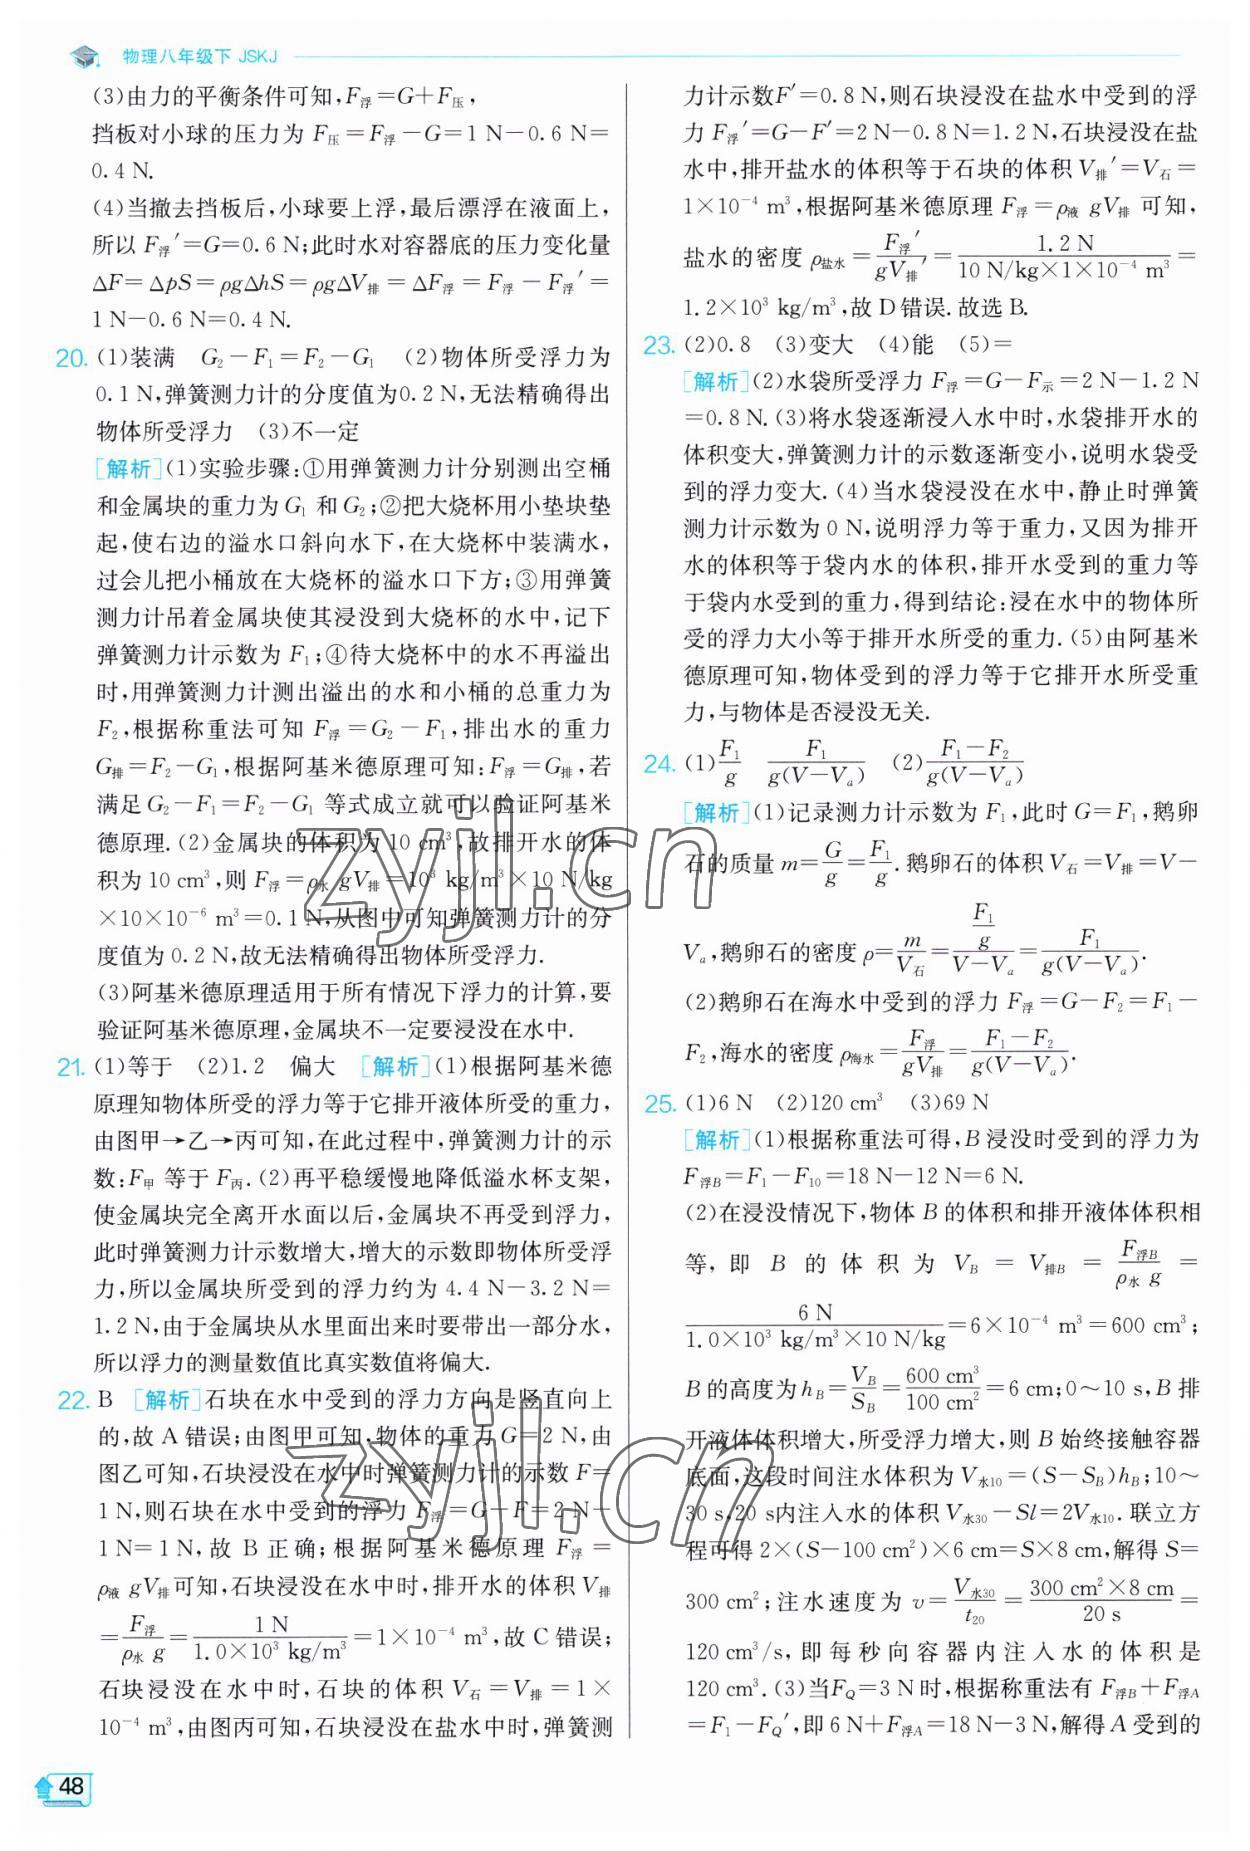 物理八年级下 JSKJ
(3)由力的平衡条件可知,F浮=G+F压,
挡板对小球的压力为 F压=F浮-G=1 N-0.6 N=
0.4 N.
(4)当撤去挡板后,小球要上浮,最后漂浮在液面上,
所以 F浮′=G=0.6 N;此时水对容器底的压力变化量
ΔF=ΔpS=ρgΔhS=ρgΔV排=ΔF浮=F浮-F浮′=
1 N-0.6 N=0.4 N.
20. (1)装满 G₂-F₁=F₂-G₁ (2)物体所受浮力为
0.1 N,弹簧测力计的分度值为0.2 N,无法精确得出
物体所受浮力 (3)不一定
[解析](1)实验步骤:①用弹簧测力计分别测出空桶
和金属块的重力为 G₁ 和 G₂;②把大烧杯用小垫块垫
起,使右边的溢水口斜向水下,在大烧杯中装满水,
过会儿把小桶放在大烧杯的溢水口下方;③用弹簧
测力计吊着金属块使其浸没到大烧杯的水中,记下
弹簧测力计示数为 F₁;④待大烧杯中的水不再溢出
时,用弹簧测力计测出溢出的水和小桶的总重力为
F₂,根据称重法可知 F浮=G₂-F₁,排出水的重力
G排=F₂-G₁,根据阿基米德原理可知:F浮=G排,若
满足 G₂-F₁=F₂-G₁ 等式成立就可以验证阿基米
德原理.(2)金属块的体积为 10 cm³,故排开水的体
积为 10 cm³,则 F浮=ρ水 gV排=10³ kg/m³×10 N/kg
×10×10⁻⁶ m³=0.1 N,从图中可知弹簧测力计的分
度值为 0.2 N,故无法精确得出物体所受浮力.
(3)阿基米德原理适用于所有情况下浮力的计算,要
验证阿基米德原理,金属块不一定要浸没在水中.
21. (1)等于 (2)1.2 偏大 [解析](1)根据阿基米德
原理知物体所受的浮力等于它排开液体所受的重力,
由图甲→乙→丙可知,在此过程中,弹簧测力计的示
数:F甲 等于 F丙.(2)再平稳缓慢地降低溢水杯支架,
使金属块完全离开水面以后,金属块不再受到浮力,
此时弹簧测力计示数增大,增大的示数即物体所受浮
力,所以金属块所受到的浮力约为 4.4 N-3.2 N=
1.2 N,由于金属块从水里面出来时要带出一部分水,
所以浮力的测量数值比真实数值将偏大.
22. B [解析]石块在水中受到的浮力方向是竖直向上
的,故 A 错误;由图甲可知,物体的重力 G=2 N,由
图乙可知,石块浸没在水中时弹簧测力计的示数 F=
1 N,则石块在水中受到的浮力 F浮=G-F=2 N-
1 N=1 N,故 B 正确;根据阿基米德原理 F浮=
ρ液 gV排可知,石块浸没在水中时,排开水的体积 V排
=F浮/(ρ水 g)=1 N/(1.0×10³ kg/m³)=1×10⁻⁴ m³,故 C 错误;
石块浸没在水中时,石块的体积 V石=V排=1×
10⁻⁴ m³,由图丙可知,石块浸没在盐水中时,弹簧测
力计示数F′=0.8 N,则石块浸没在盐水中受到的浮
力 F浮′=G-F′=2 N-0.8 N=1.2 N,石块浸没在盐
水中,排开盐水的体积等于石块的体积 V排′=V石=
1×10⁻⁴ m³,根据阿基米德原理 F浮=ρ液 gV排 可知,
盐水的密度 ρ盐水=F浮′/(gV排′)=1.2 N/(10 N/kg×1×10⁻⁴ m³)=
1.2×10³ kg/m³,故 D 错误.故选 B.
23. (2)0.8 (3)变大 (4)能 (5)=
[解析](2)水袋所受浮力 F浮=G-F示=2 N-1.2 N
=0.8 N.(3)将水袋逐渐浸入水中时,水袋排开水的
体积变大,弹簧测力计的示数逐渐变小,说明水袋受
到的浮力变大.(4)当水袋浸没在水中,静止时弹簧
测力计示数为 0 N,说明浮力等于重力,又因为排开
水的体积等于袋内水的体积,排开水受到的重力等
于袋内水受到的重力,得到结论:浸在水中的物体所
受的浮力大小等于排开水所受的重力.(5)由阿基米
德原理可知,物体受到的浮力等于它排开水所受重
力,与物体是否浸没无关.
24. (1)F₁/g F₁/(g(V-Vₐ)) (2)(F₁-F₂)/(g(V-Vₐ))
[解析](1)记录测力计示数为 F₁,此时 G=F₁,鹅卵
石的质量 m=G/g=F₁/g.鹅卵石的体积 V石=V排=V-
Vₐ,鹅卵石的密度 ρ=m/V石=(F₁/g)/(V-Vₐ)=F₁/(g(V-Vₐ)).
(2)鹅卵石在海水中受到的浮力 F浮=G-F₂=F₁-
F₂,海水的密度 ρ海水=F浮/(gV排)=(F₁-F₂)/(g(V-Vₐ)).
25. (1)6 N (2)120 cm³ (3)69 N
[解析](1)根据称重法可得,B 浸没时受到的浮力为
F浮B=F₁-F₁₀=18 N-12 N=6 N.
(2)在浸没情况下,物体 B 的体积和排开液体体积相
等,即 B 的体积为 V_B=V排B=F浮B/(ρ水 g)=
6 N/(1.0×10³ kg/m³×10 N/kg)=6×10⁻⁴ m³=600 cm³;
B 的高度为 h_B=V_B/S_B=600 cm³/100 cm²=6 cm;0～10 s,B 排
开液体体积增大,所受浮力增大,则 B 始终接触容器
底面,这段时间注水体积为 V水10=(S-S_B)h_B;10～
30 s,20 s内注入水的体积 V水30=Sl=2V水10.联立方
程可得 2×(S-100 cm²)×6 cm=S×8 cm,解得 S=
300 cm²;注水速度为 v=V水30/t₂₀=(300 cm²×8 cm)/20 s=
120 cm³/s,即每秒向容器内注入水的体积是
120 cm³.(3)当F_Q=3 N 时,根据称重法有 F浮B+F浮A
=F₁-F_Q′,即 6 N+F浮A=18 N-3 N,解得 A 受到的
48
zyjl.cn
zyjl.cn